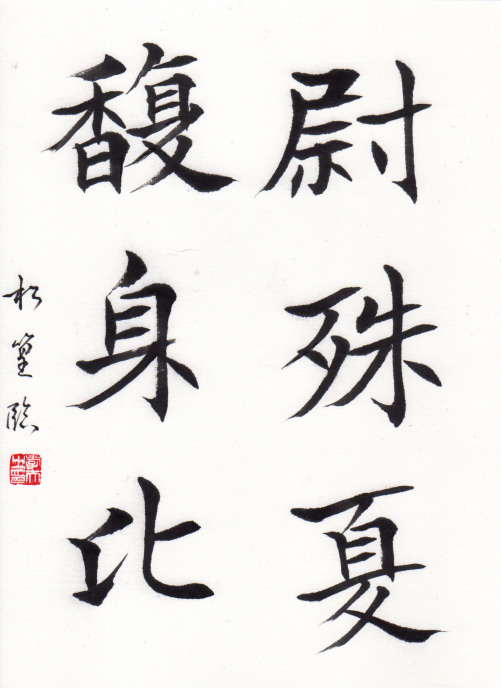 尉殊夏
馥身比
松篁臨